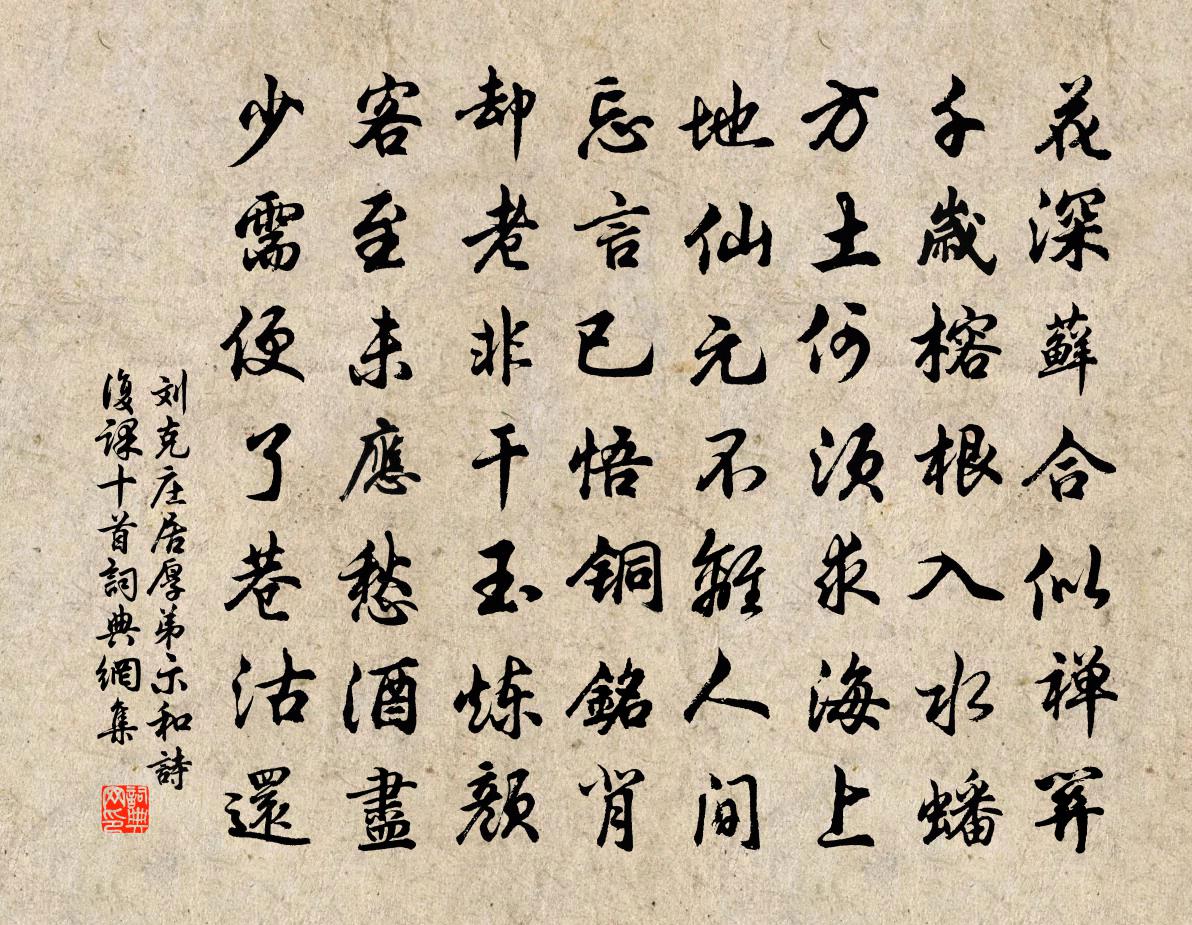 花深蘚合似禅关
千歲榕根入水蟠
方土何須求海上
地仙元不離人间
忘言已悟铜銘背
却老非干玉炼颜
客至未應愁酒盡
少需便了巷沽還
刘克庄居厚弟示和詩
復課十首詞典網集
詞典
网印